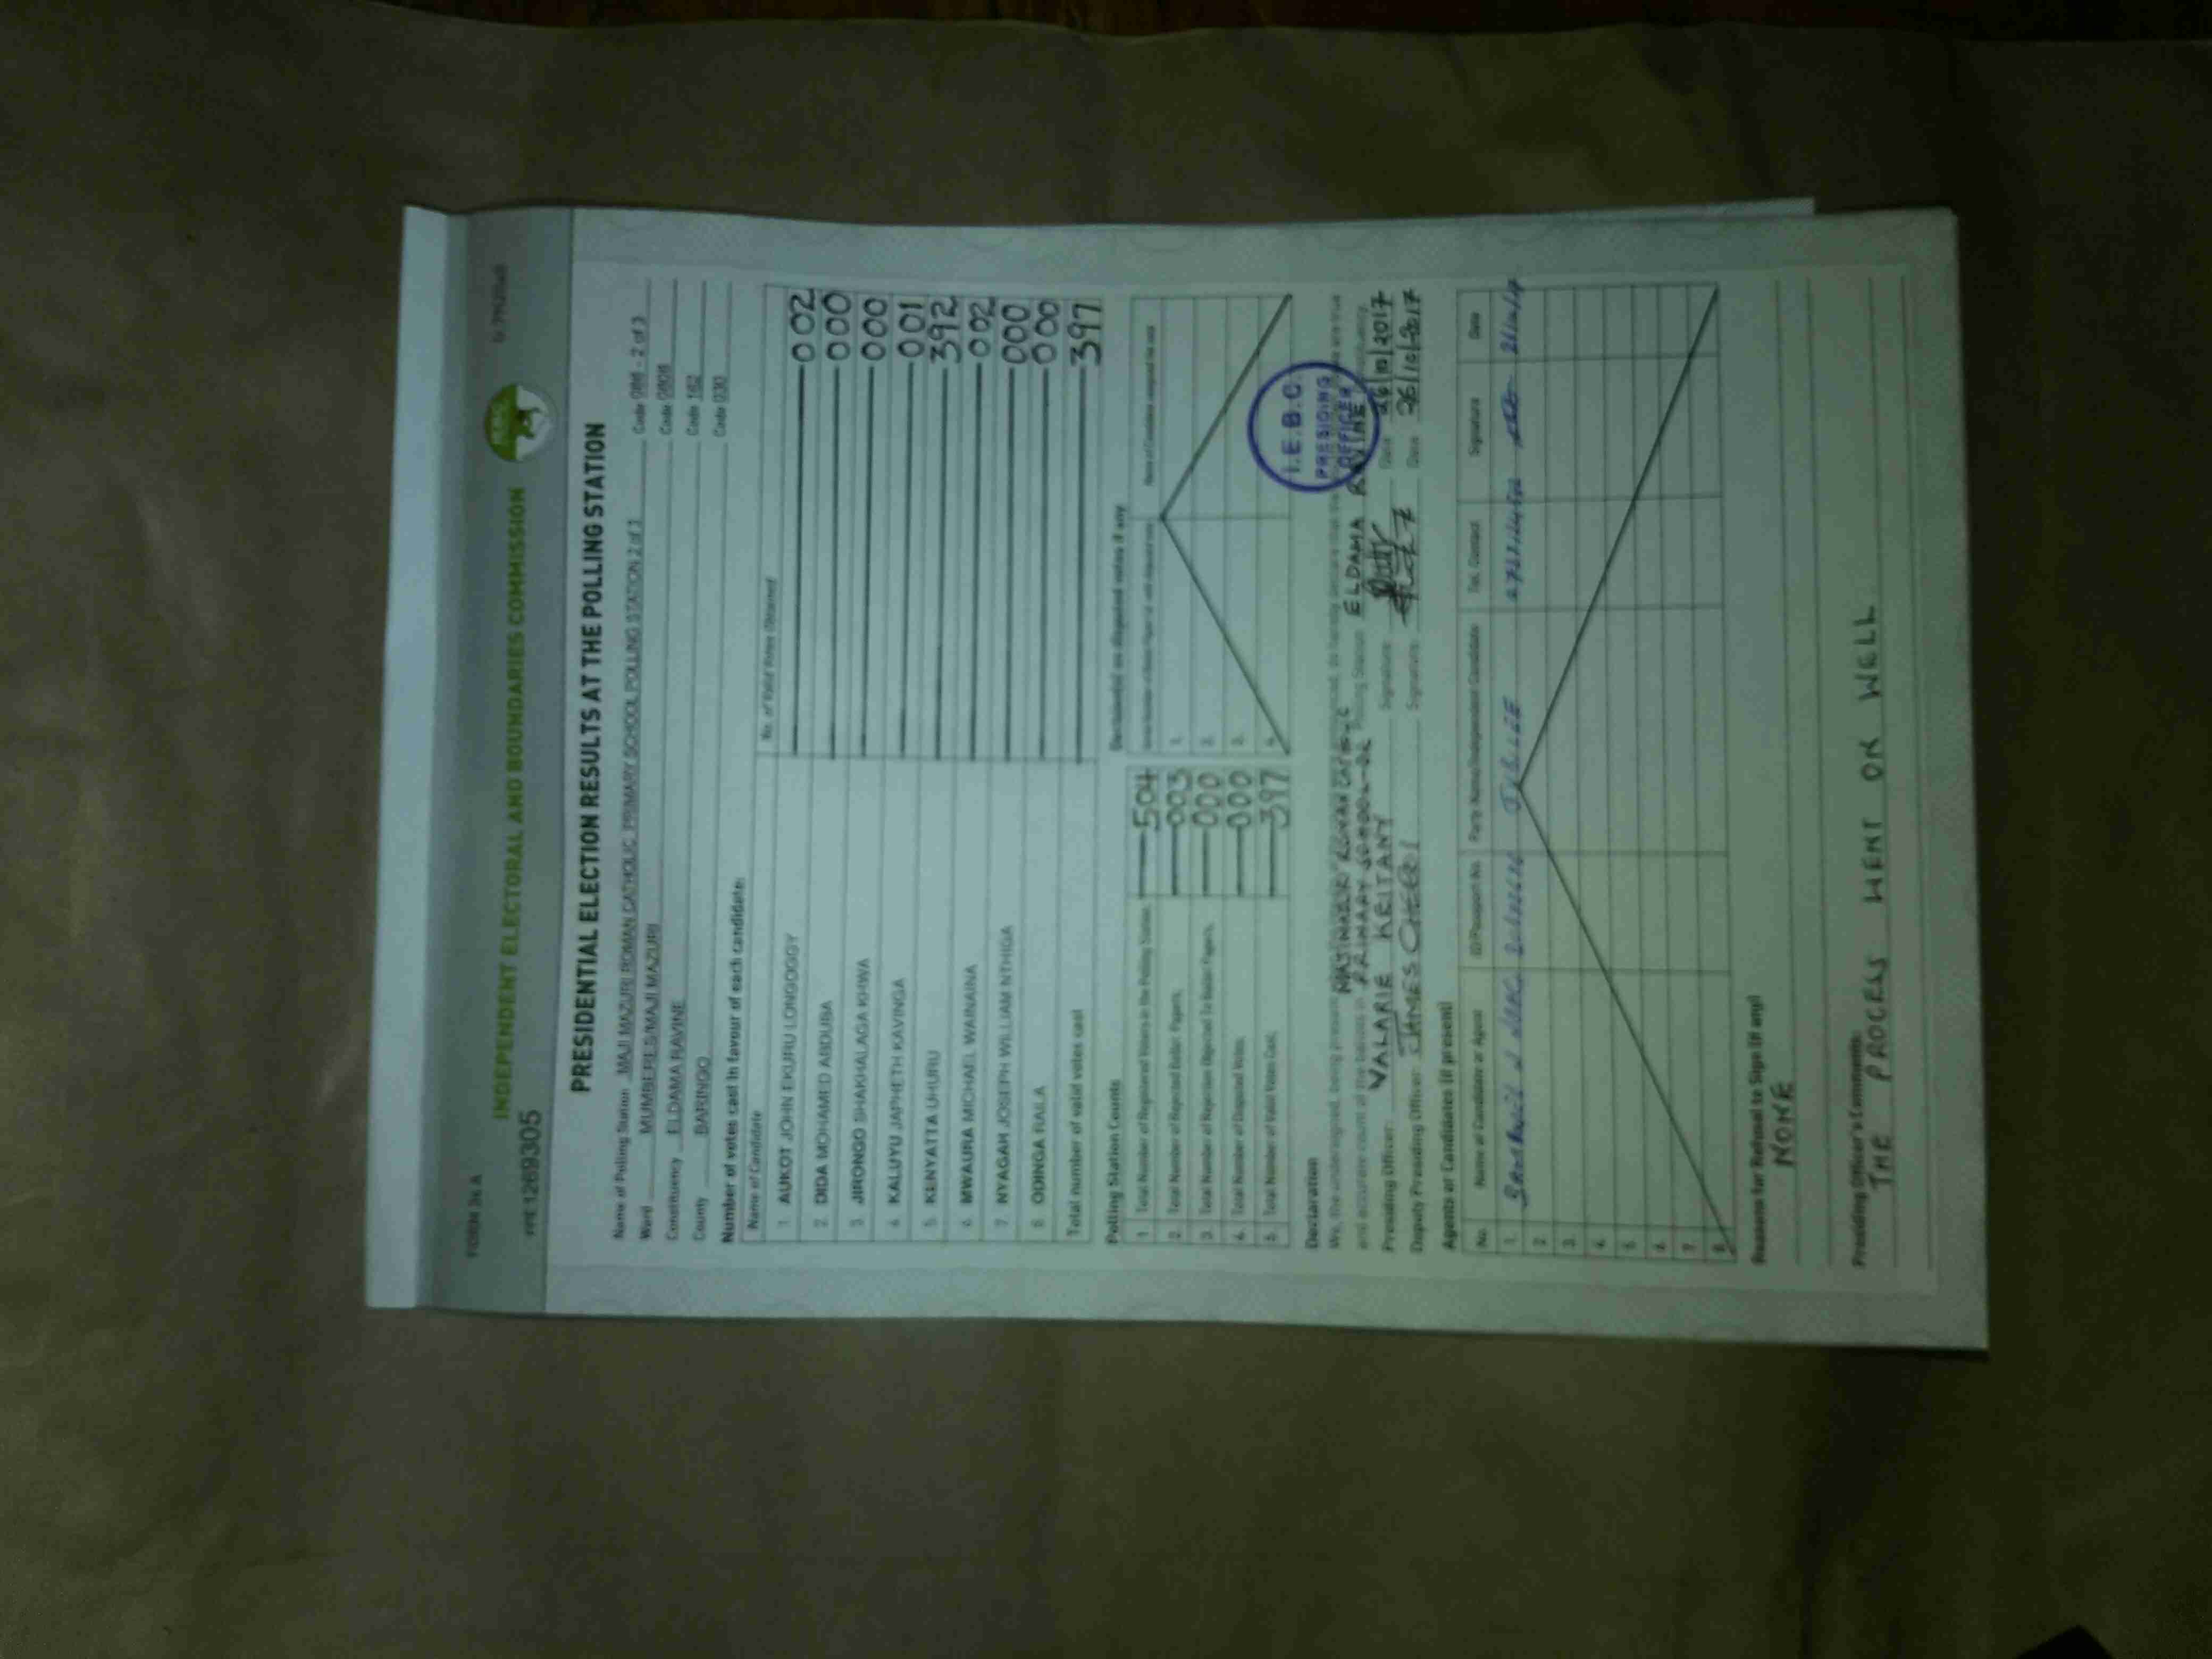 FORM 34A
INDEPENDENT ELECTORAL AND BOUNDARIES COMMISSION
PRESIDENTIAL ELECTION RESULTS AT THE POLLING STATION
Name of Polling Station MAJI MAZURI ROMAN CATHOLIC PRIMARY SCHOOL POLLING STATION 2 of 3 Code 088 - 2 of 3
Ward MUMBERES/MAJI MAZURI Code 0808
Constituency ELDAMA RAVINE Code 162
County BARINGO Code 030
Number of votes cast in favour of each candidate:
Name of Candidate No. of Valid Votes Obtained
1. AUKOT JOHN EKURU LONGOGGY 002
2. DIDA MOHAMED ABDUBA 000
3. JIRONGO SHAKHALAGA KHWA 000
4. KALUYU JAPHETH KAVINGA 001
5. KENYATTA UHURU 392
6. MWAURA MICHAEL WAINAINA 002
7. NYAGAH JOSEPH WILLIAM NTHIGA 000
8. ODINGA RAILA 000
Total number of valid votes cast 397
Polling Station Counts
1. Total Number of Registered Voters in the Polling Station 504
2. Total Number of Rejected Ballot Papers 003
3. Total Number of Rejection Objected To Ballot Papers 000
4. Total Number of Disputed Votes 000
5. Total Number of Valid Votes Cast 397
Decision(s) on disputed votes if any
1.
2.
3.
4.
I.E.B.C
PRESIDING
OFFICER
Declaration
We, the undersigned, being present
MAJI MAZURI ROMAN CATHOLIC
PRIMARY SCHOOL - 02 Polling Station ELDAMA RAVINE
Presiding Officer: VALARIE KEITANY Signature: Date 26/10/2017
Deputy Presiding Officer: Signature: Date 26/10/2017
Agents of Candidates (if present)
No. Name of Candidate or Agent ID/Passport No. Party Name/Independent Candidate Tel. Contact Signature Date
1.
2.
3.
4.
5.
6.
7.
8.
Reasons for Refusal to Sign (if any)
NONE
Presiding Officer's Comments:
THE PROCESS WENT ON WELL